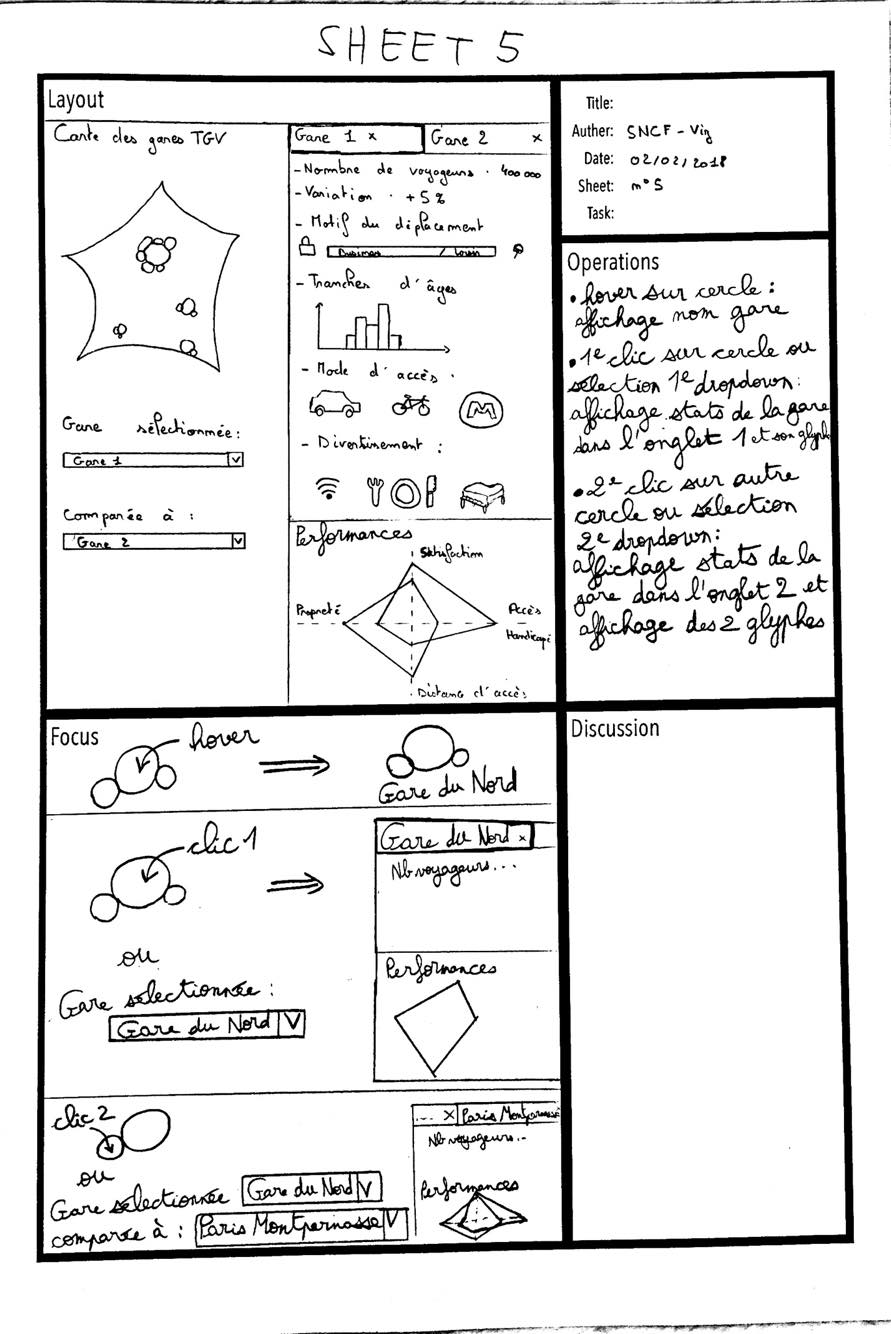 SHEET 5
Layout
Carte des gares TGV
Gare sélectionnée:
Gare 1 V
Comparée à :
Gare 2 V
Gare 1 x
Gare 2 x
- Nombre de voyageurs . 400 000
- Variation . +5 %
- Motif du déplacement
Business / Loisir
- Tranches d'âges
- Mode d'accès .
M
- Divertissement :
Performances
Satisfaction
Propreté
Accès
Handicapé
Distance d'accès
Title:
Auther: SNCF - Viz
Date: 02/02/2018
Sheet: n° 5
Task:
Operations
• hover sur cercle :
affichage nom gare
• 1e clic sur cercle ou
sélection 1e dropdown:
affichage stats de la gare
dans l'onglet 1 et son glyphe
• 2e clic sur autre
cercle ou sélection
2e dropdown:
affichage stats de la
gare dans l'onglet 2 et
affichage des 2 glyphes
Focus
hover
Gare du Nord
clic 1
ou
Gare sélectionnée :
Gare du Nord V
Gare du Nord x
Nb voyageurs...
Performances
clic 2
ou
Gare sélectionnée Gare du Nord V
comparée à : Paris Montparnasse V
... X Paris Montparnasse
Nb voyageurs..
Performances
Discussion